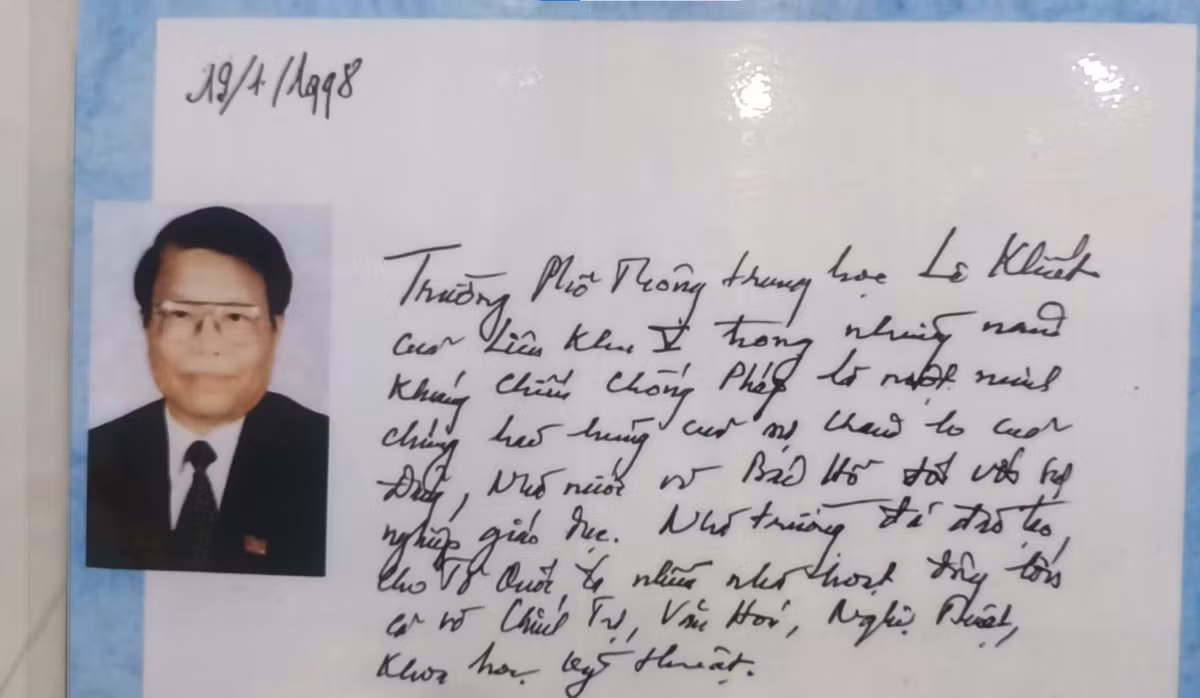 19/1/1998
Trường Phổ Thông trung học Lê Khiết
của Liên Khu V trong những năm
kháng chiến chống Pháp là một minh
chứng hào hùng của sự chăm lo của
Đảng, Nhà nước và Bác Hồ đối với sự
nghiệp giáo dục. Nhà trường đã đào tạo,
cho Tổ Quốc, ta nhiều nhà hoạt động lớn
cả về Chính Trị, Văn Hoá, Nghệ Thuật,
Khoa học kỹ thuật.